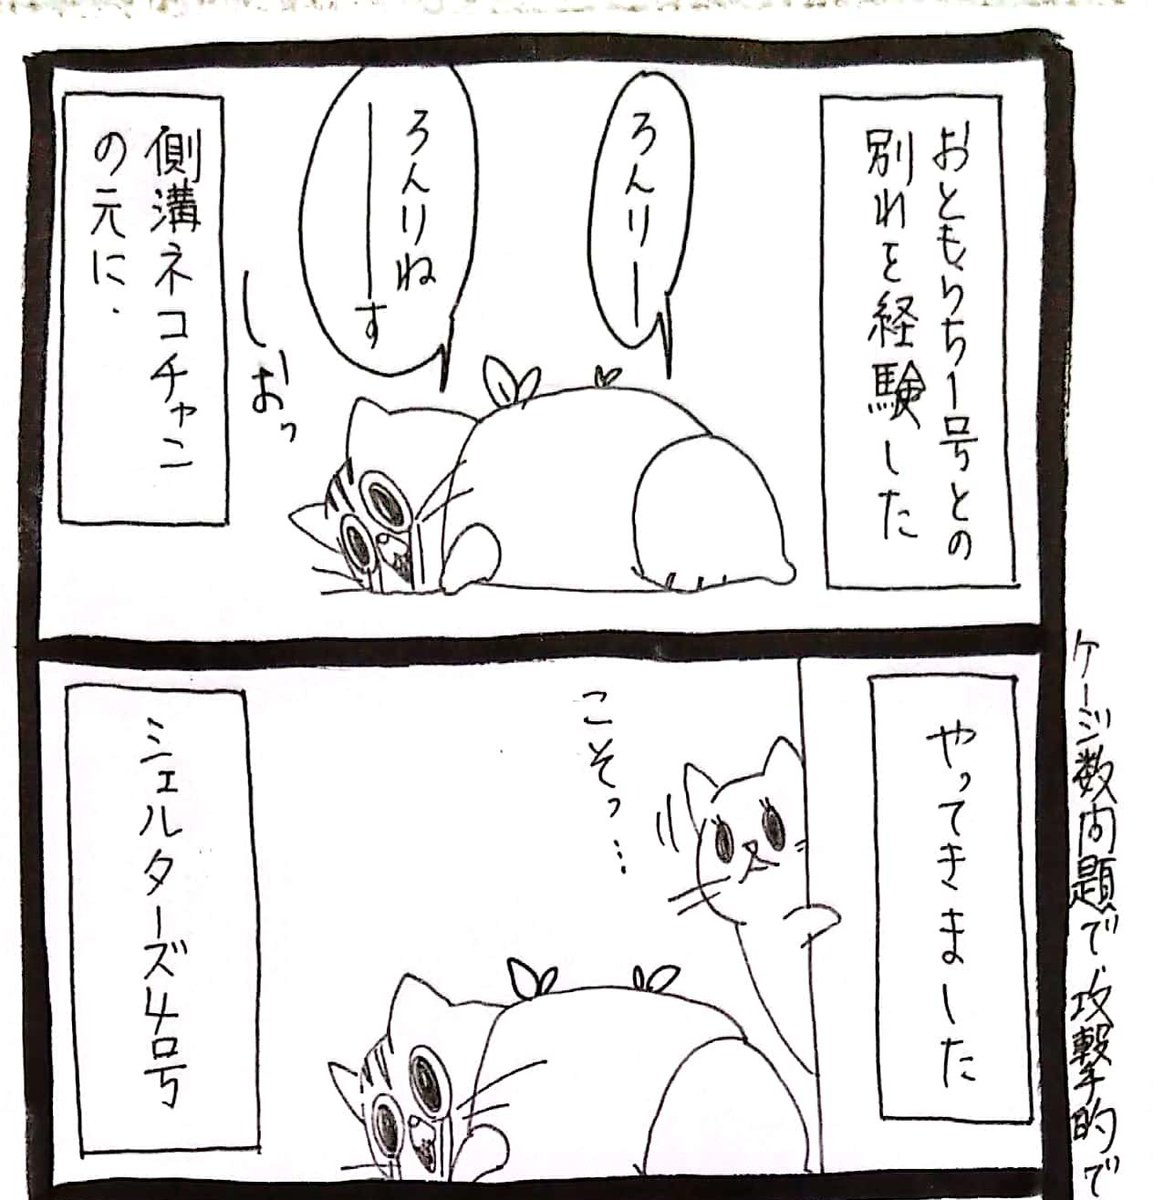 おともらち1号との
別れを経験した
ろんりー
ろんりね
ーす
しおっ
側溝ネコチャン
の元に.
やってきました
こそっ…
シェルターズ4号
ケージ数内題で、攻撃的で